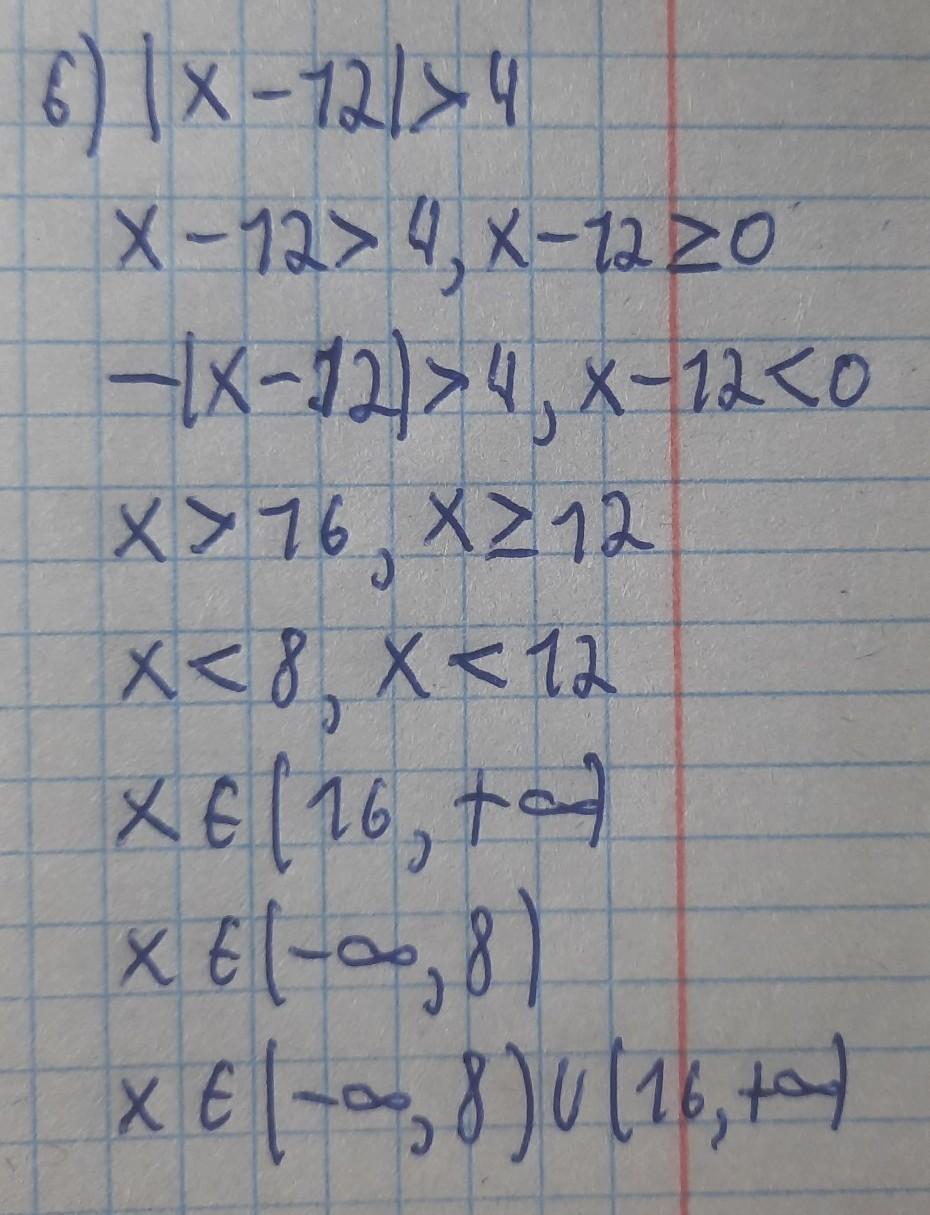 б) |x-12|>4
x-12>4, x-12≥0
-(x-12)>4, x-12<0
x>16, x≥12
x<8, x<12
x∈(16, +∞)
x∈(-∞, 8)
x∈(-∞, 8)∪(16, +∞)